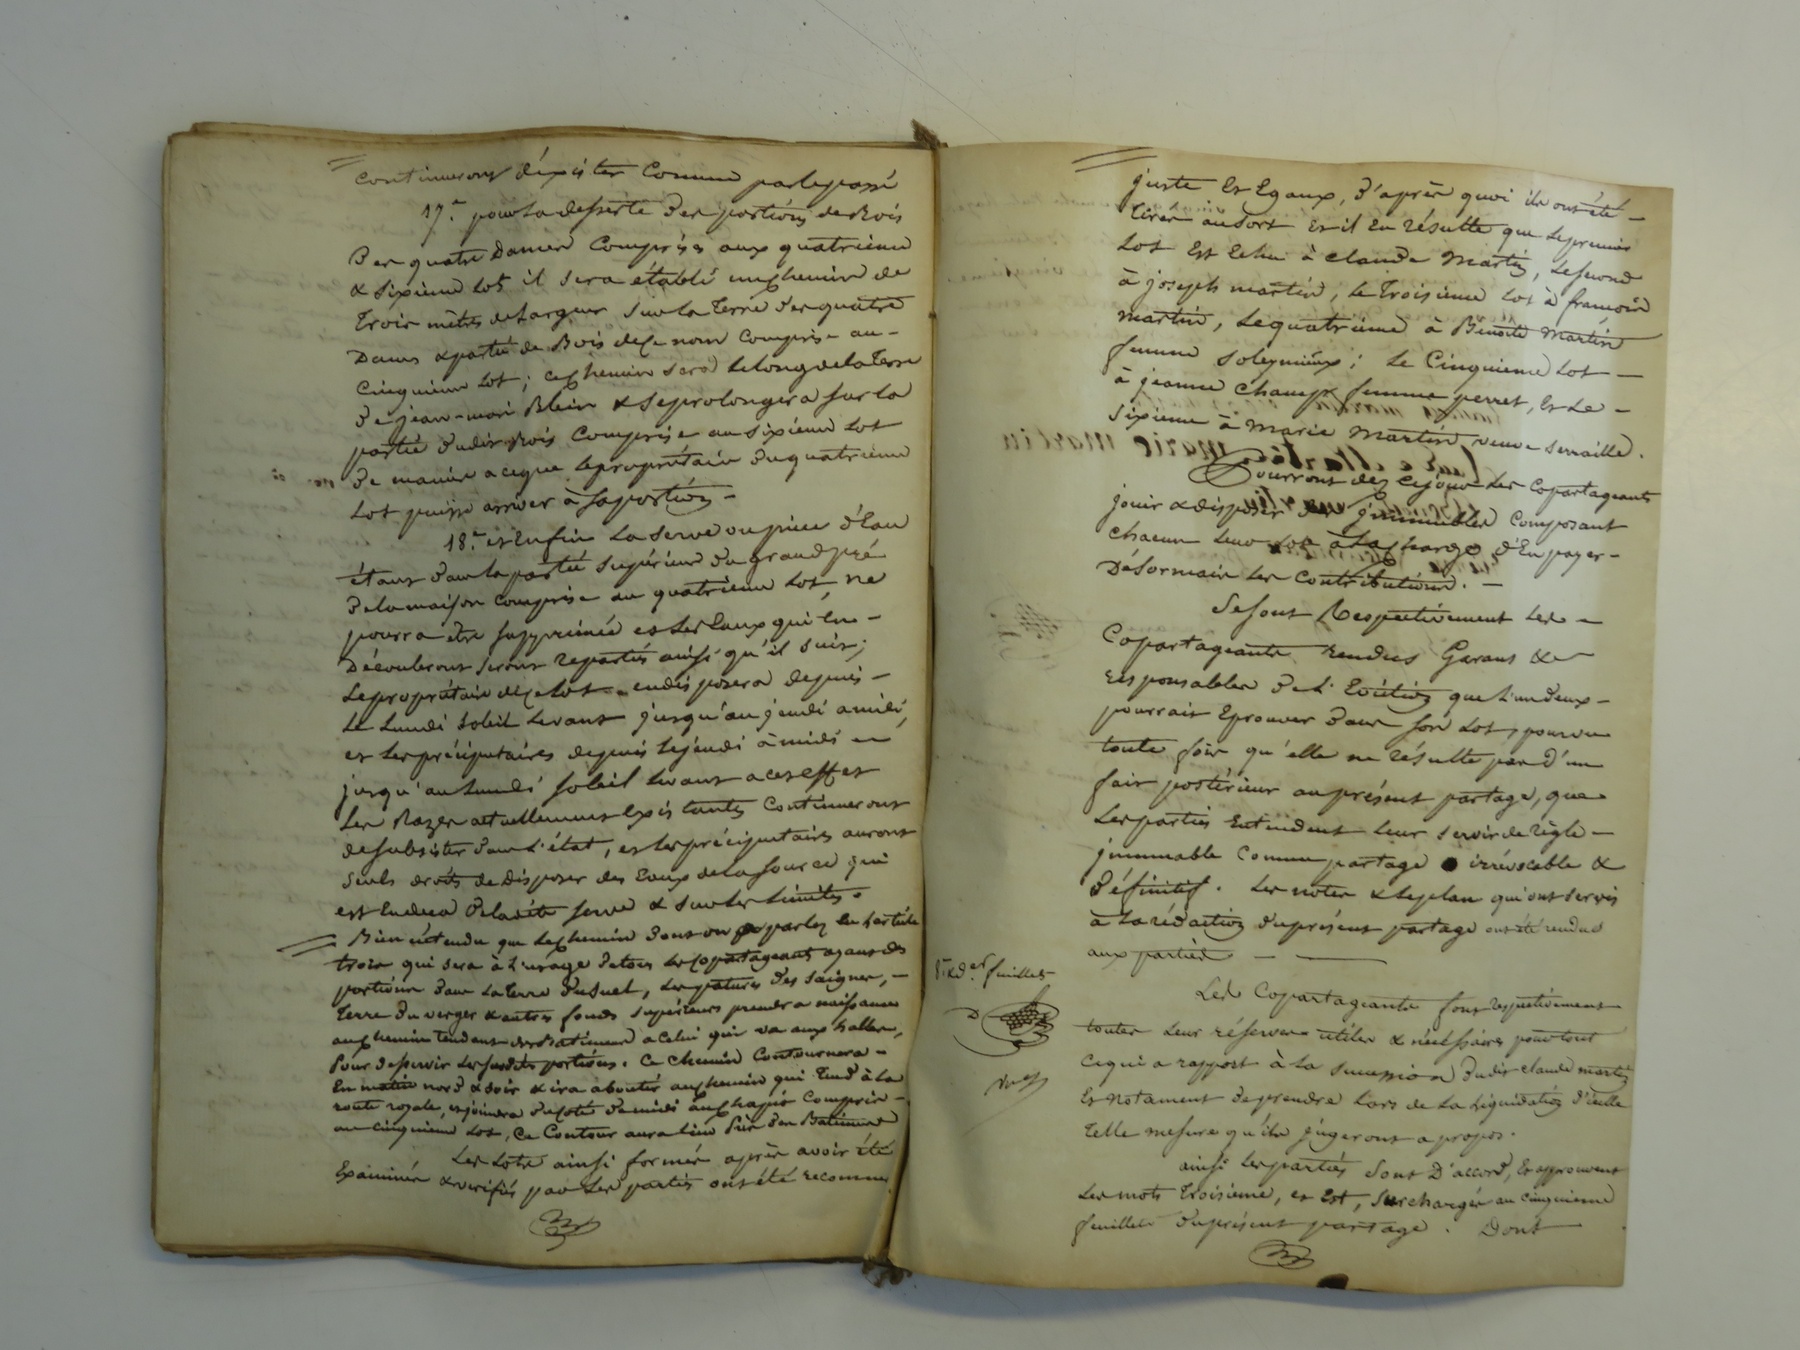 continueront d'éxister Comme parlepassé
17.° pour la desserte des portions de Bois
Des quatre Dames Comprises aux quatrieme
& sixieme Lot il sera établi un chemin de
trois mètres de Largeur sur la terre des quatre
Dames & partie de Bois de ce nom Comprise au -
Cinquieme Lot ; ce chemin sera le long de la terre
de jean-mari Blein & se prolongera sur la
partie dudit Bois Comprise au sixieme Lot
de maniere a ceque le proprietaire du quatrieme
Lot puisse arriver à sa portion -
18.° et Enfin La serve ou piece d'Eau
étant dans la partie supérieure du grand pré
de la maison comprise au quatrieme Lot, ne
pourra être supprimée et Les Eaux qui En -
Découleront seront reparties ainsi qu'il suit ;
Le propriétaire de ce Lot en disposera depuis -
Le Lundi soleil Levant jusqu'au jeudi a midi,
et Les préciputaires depuis le jeudi à midi
jusqu'au Lundi soleil Levant a cet effet
Les Razes actuellement Existantes Continueront
de subsister dans L'état, et Les préciputaires auront
seuls droits de Disposer des Eaux de La source qui
est Endeca de la dite serve & sur Les Limites.
Bien entendu que le chemin dont on parle en L'article
trois qui sera à L'usage de tous Les Copartageants ayant des
portions dans La terre du suel, Les patures des saignes, -
terre du verger & autres fonds supérieurs prendra naissance
au chemin tendant des Batiments a Celui qui va aux halles,
Pour desservir Les susdits portions. Ce chemin Contournera -
En matin nord & soir & ira aboutir au chemin qui tend à La
route royale, et joindra du coté de midi au chapit Compris -
au cinquieme Lot, Ce Contour aura Lieu Près des Batiments
Les Lots ainsi formés après avoir été
Examinés & verifiés par Les parties ont été reconnus
juste Et Egaux, d'après quoi ils ont été -
tirés au sort Et il En résulte que le premier
Lot Est Echu à Claude Martin, Le second
à joseph martin, Le troisieme Lot à francois
martin, Le quatrieme à Benoite Martin
femme soleymieux ; Le Cinquieme Lot -
à jeanne Champ femme perret, Et Le -
sixieme à Marie Martin veuve serraille.
Pourront des ce jour Les Copartageants
jouir & disposer des jmmeubles Composant
chacun Leur Lot à La charge d'En payer -
Désormais Les Contributions. -
Se sont Respectivement Les -
Copartageants rendus Garans &
responsables De L'Eviction que L'un d'eux -
pourrait Eprouver dans son Lot, pourvu
toute fois qu'elle ne résulte pas d'un
fait postérieur au présent partage, que
Les parties Entendent Leur servir de règle -
jmmuable Comme partage irrévocable &
Définitif. Les notes & Le plan qui ont servis
à La rédaction du présent partage ont été rendus
aux parties -
feuillet
Les Copartageants font respectivement
toutes Leur réserves utiles & nécéssaires pour tout
ce qui a rapport à La succession dudit claude martin
Et notament de prendre Lors de La Liquidation d'icelle
telle mesure qu'ils jugeront a propos.
ainsi Les parties sont D'accord, Et approuvent
Les mots troisieme, et Lot, surchargés au cinquieme
feuillet du présent partage. Dont